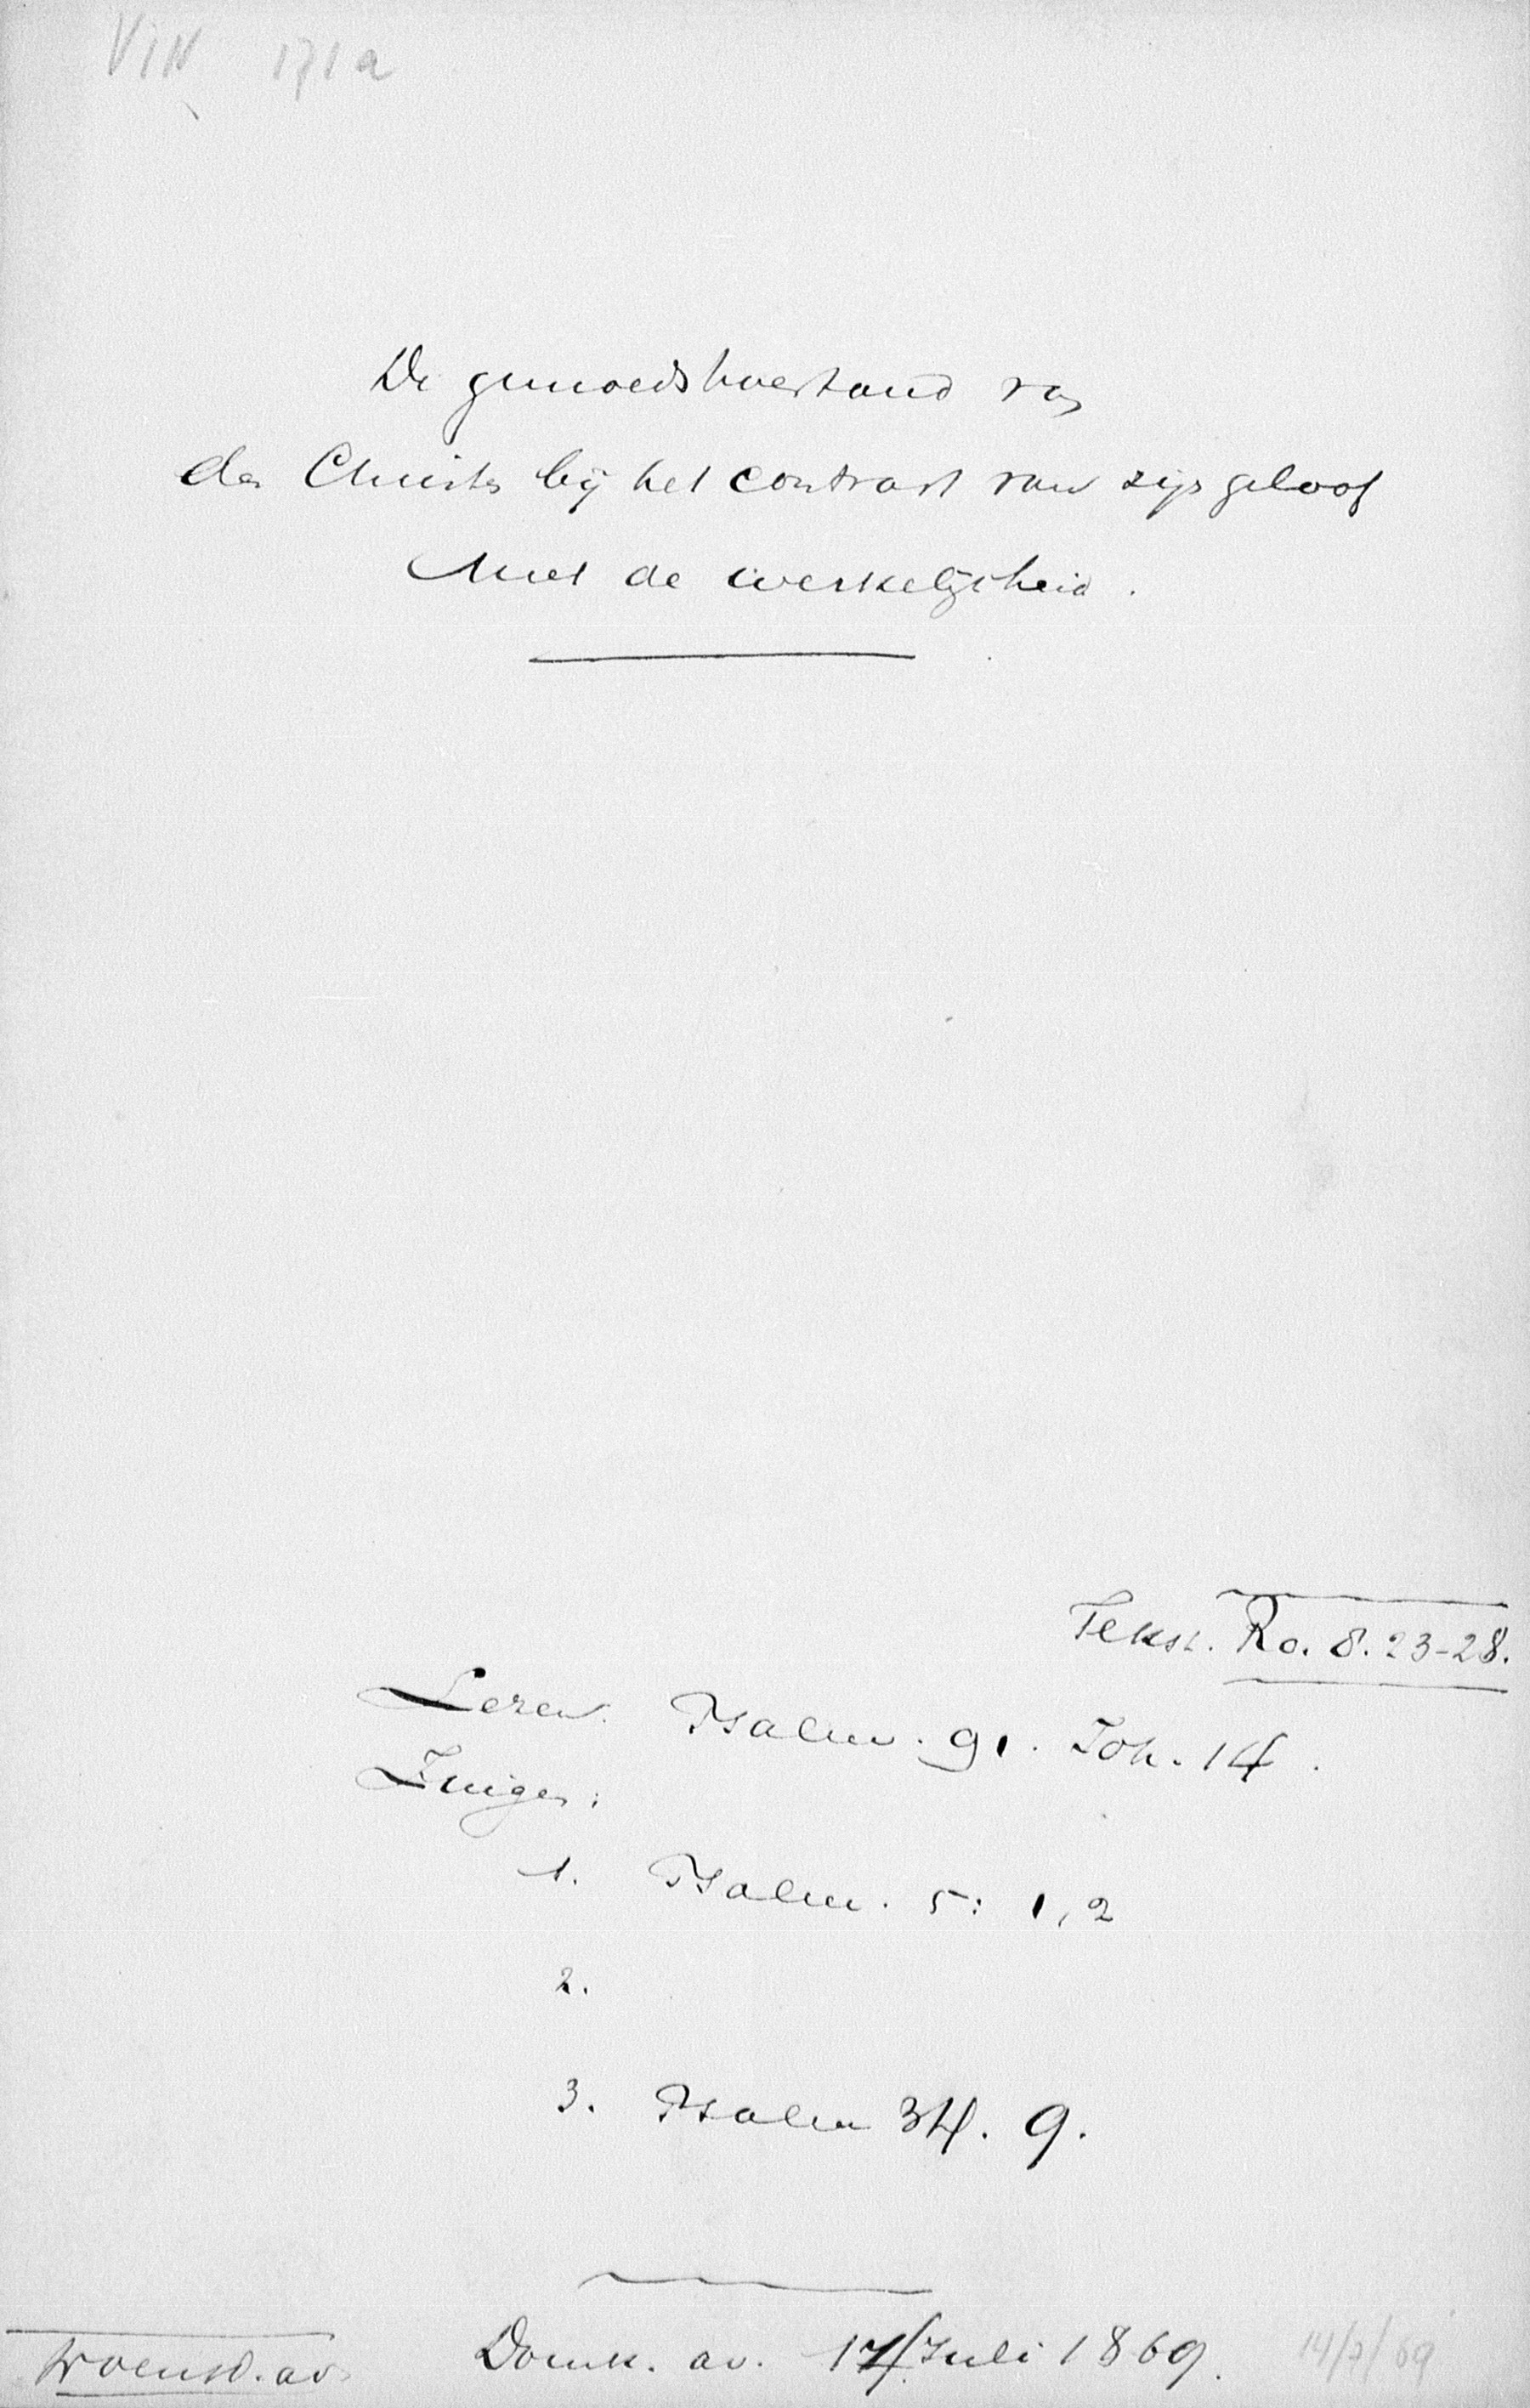 VIN 171a
De gemoedstoestand van
den Christen bij het contrast van zijn geloof
Met de werkelijkheid.
Tekst. Ro. 8. 23-28.
Lezen. Psalm. 91. Joh. 14.
Zingen:
1. Psalm. 5: 1, 2
2.
3. Psalm 34. 9.
Woensd. av. Domk. av. 14/Juli 1869. 14/7/69